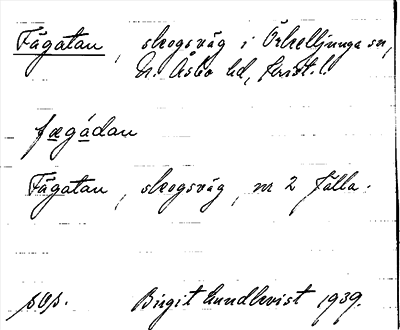 Fägatan, skogsväg i Örkelljunga sn,
N. Åsbo hd, Krist. l.
fægádan
Fägatan, skogsväg, nr 2 Fälla.
Birgit Lundkvist 1939.